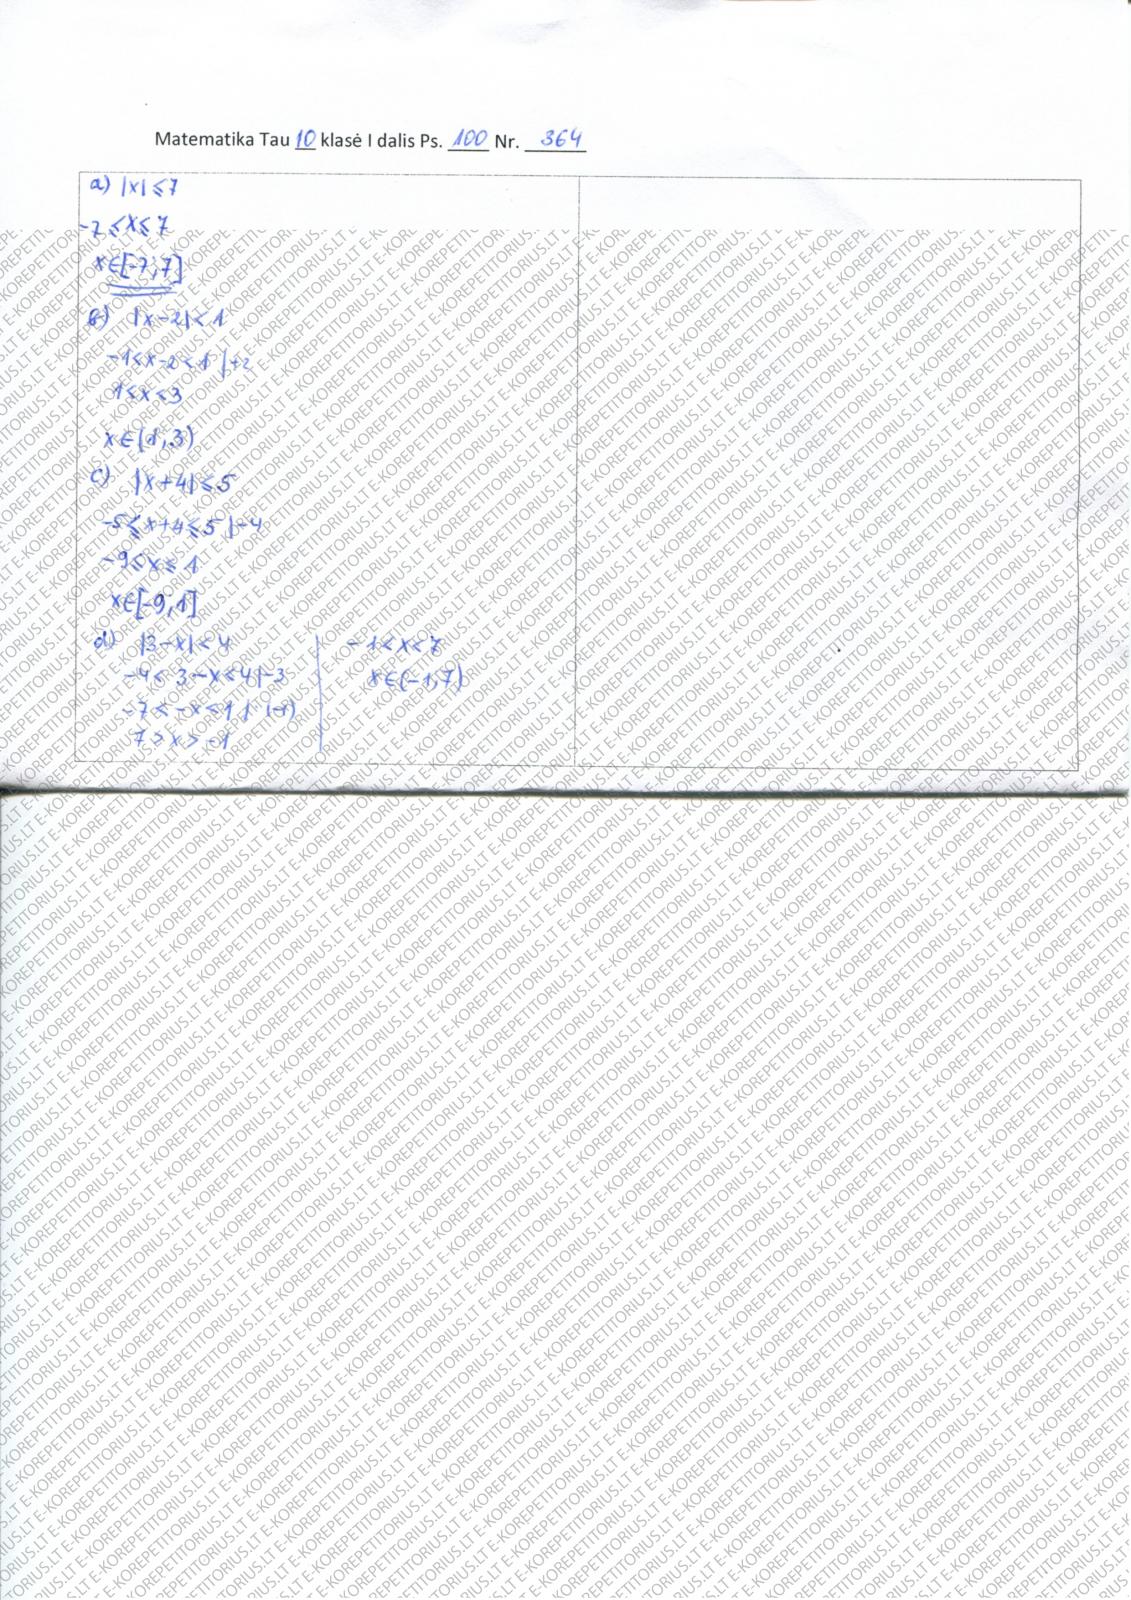 Matematika Tau 10 klasė I dalis Ps. 100 Nr. 364
a) |x| ⩽ 7
-7 ⩽ x ⩽ 7
x ∈ [-7; 7]
b) |x-2| < 1
-1 < x-2 < 1 | +2
1 < x < 3
x ∈ (1; 3)
c) |x+4| ⩽ 5
-5 ⩽ x+4 ⩽ 5 | -4
-9 ⩽ x ⩽ 1
x ∈ [-9; 1]
d) |3-x| < 4
-4 < 3-x < 4 | -3
-7 < -x < 1 | · (-1)
7 > x > -1
-1 < x < 7
x ∈ (-1; 7)
E-KOREPETITORIUS.LT